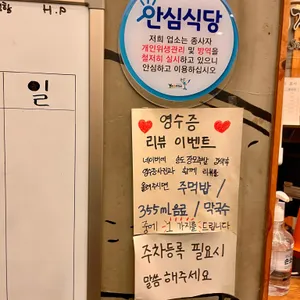 H.P
일
안심식당
저희 업소는 종사자
개인위생관리 및 방역을
철저히 실시하고 있으니
안심하고 이용하십시오
영수증
리뷰 이벤트
네이버에
영수증사진과 함께 리뷰를
올려주시면 주먹밥 /
355ml음료 / 막국수
중에 1가지를 드립니다
주차등록 필요시
말씀해주세요